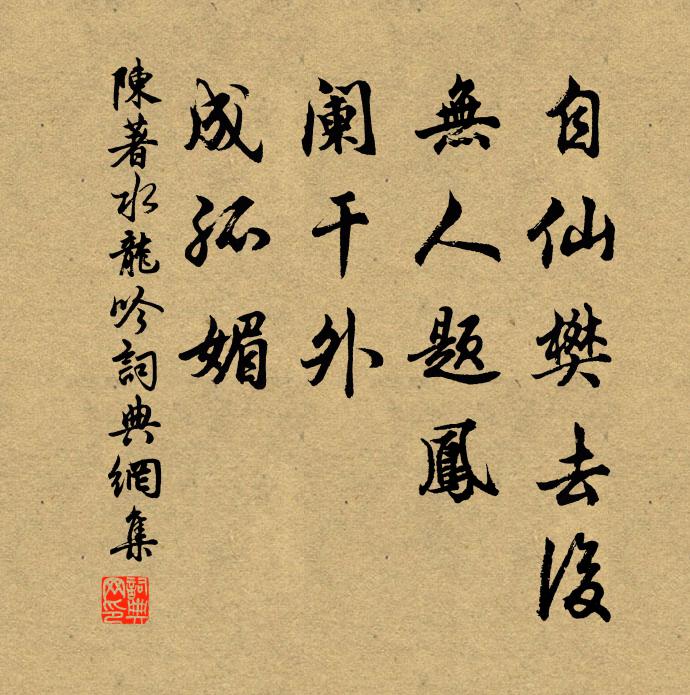 自仙樊去後
無人题鳳
阑干外
成孤媚
陳著水龍吟詞典網集
詞典网印